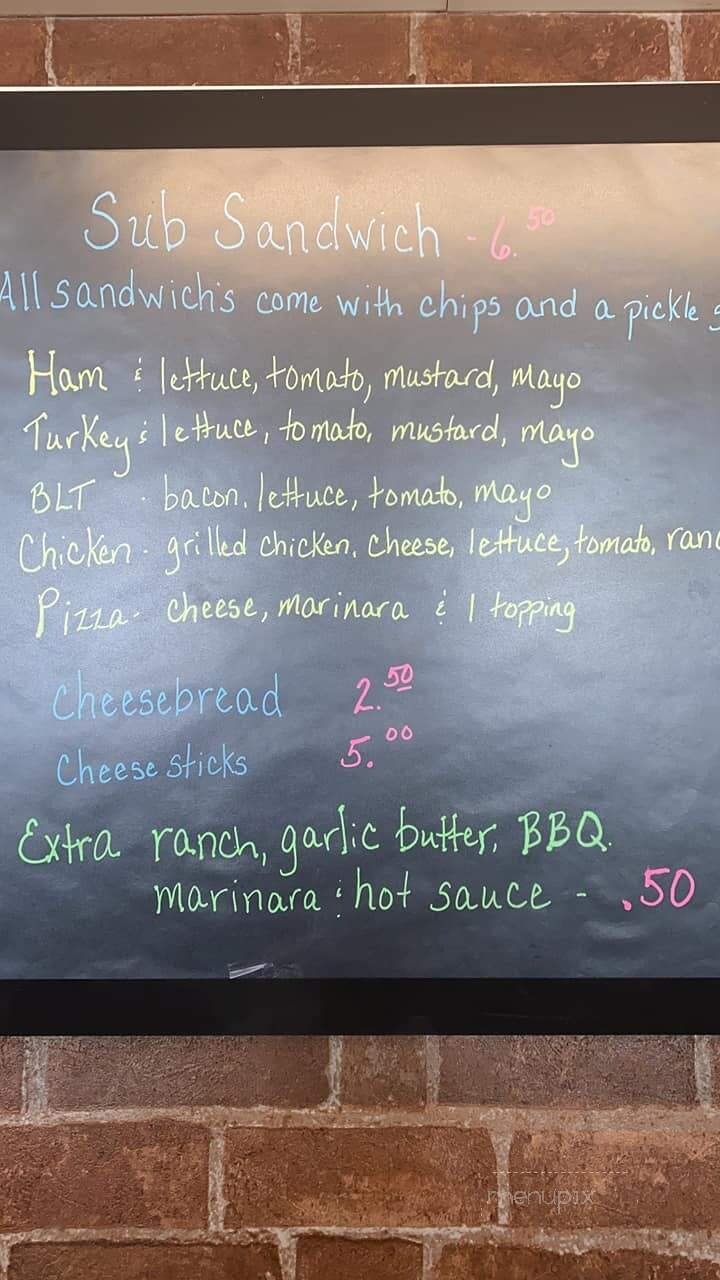 Sub Sandwich - 6.50
All sandwich's come with chips and a pickle
Ham & lettuce, tomato, mustard, mayo
Turkey & lettuce, tomato, mustard, mayo
BLT - bacon, lettuce, tomato, mayo
Chicken - grilled chicken, cheese, lettuce, tomato,
Pizza - cheese, marinara & 1 topping
Cheesebread 2.50
Cheese sticks 5.00
Extra ranch, garlic butter, BBQ.
marinara & hot sauce - .50
menupix